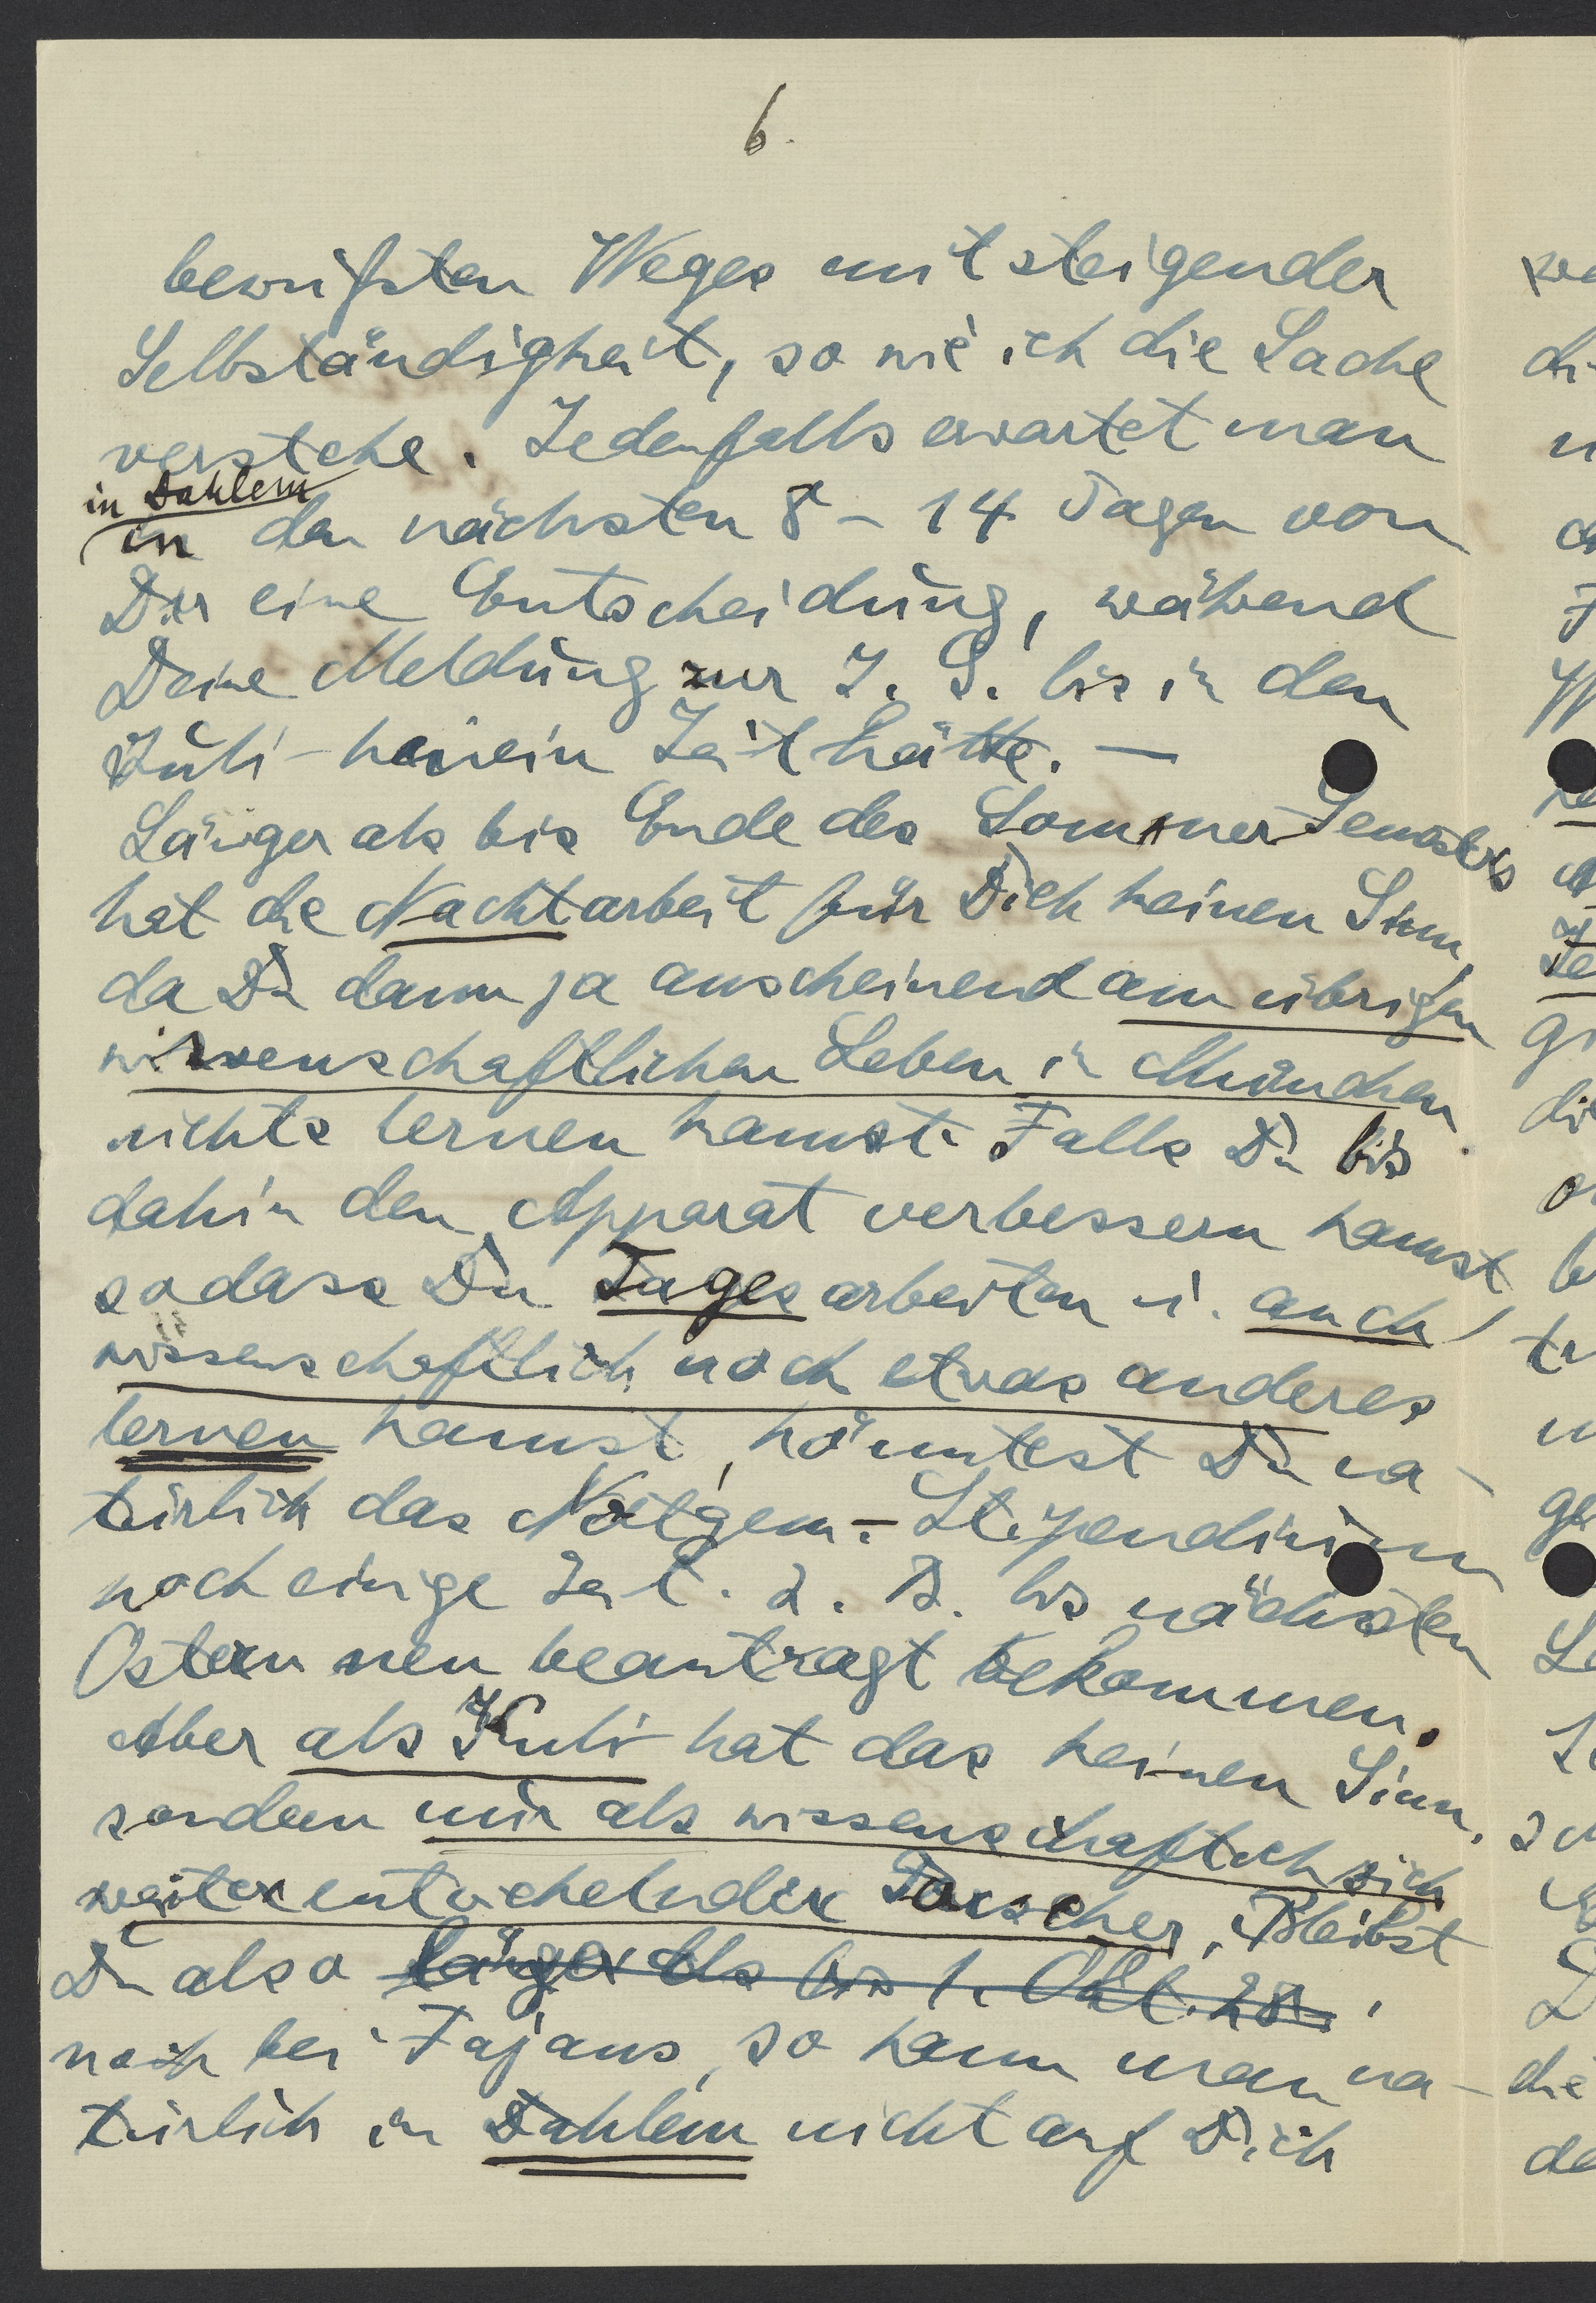 6.
bewußten Weges mit steigender
Selbständigkeit, so wie ich die Sache
verstehe. Jedenfalls erwartet man
in Dahlem
in den nächsten 8 - 14 Tagen von
Dir eine Entscheidung, während
Deine Meldung zur I. G. bis in den
Juli hinein Zeit hätte. —
Länger als bis Ende des Sommer Semesters
hat die Nachtarbeit für Dich keinen Sinn,
da Du dann ja anscheinend am übrigen
wissenschaftlichen Leben in München
nichts lernen kannst. Falls Du bis
dahin den Apparat verbessern kannst
sodass Du Tages arbeiten u. auch
wissenschaftlich noch etwas anderes
lernen kannst, könntest Du na-
türlich das Notgem.-Stipendium
noch einige Zeit. z. B. bis nächsten
Ostern neu beantragt bekommen.
Aber als Kuli hat das keinen Sinn,
sondern nur als wissenschaftlich sich
weiter entwickelnder Forscher. Bleibst
Du also länger als bis 1. Okt. 28.
noch bei Fajans, so kann man na-
türlich in Dahlem nicht auf Dich